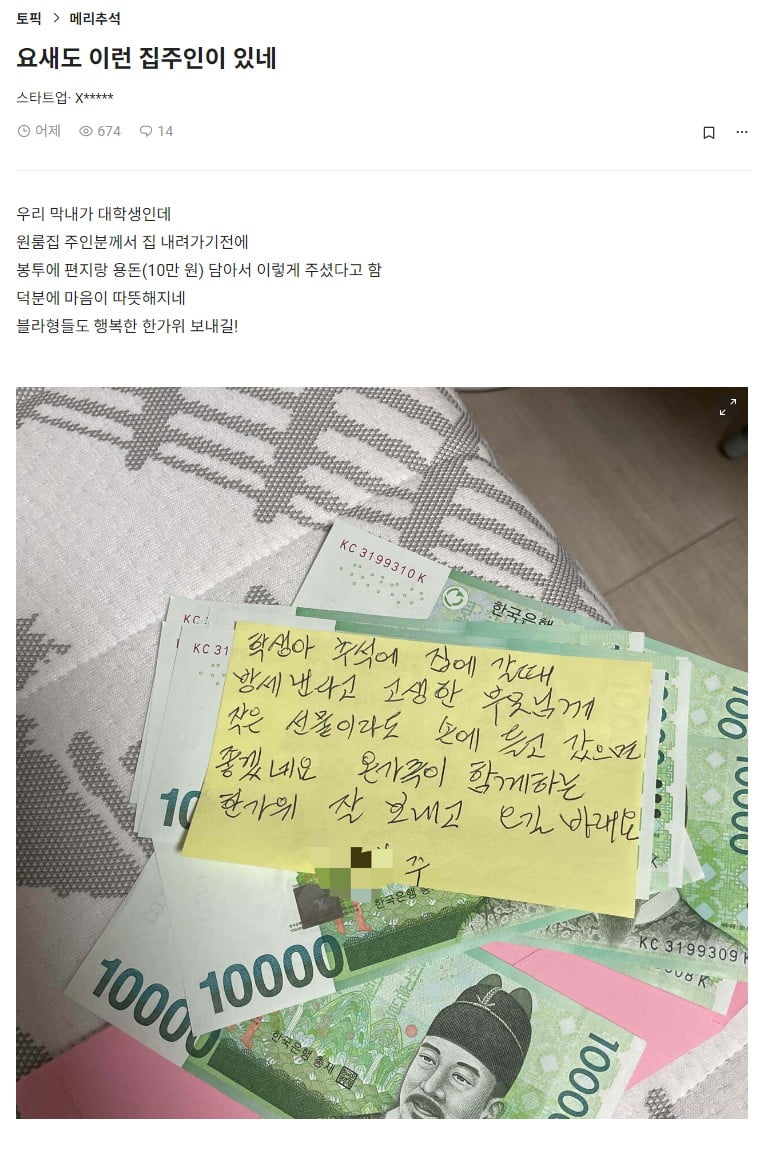 토픽 > 메리추석
요새도 이런 집주인이 있네
스타트업· X*****
어제 674 14
우리 막내가 대학생인데
원룸집 주인분께서 집 내려가기전에
봉투에 편지랑 용돈(10만 원) 담아서 이렇게 주셨다고 함
덕분에 마음이 따뜻해지네
블라형들도 행복한 한가위 보내길!
KC 3199310 K
한국은행
KC
KC 31
학생아 추석에 집에 갈때
방세 낸다고 고생한 부모님께
작은 선물이라도 손에 들고 갔으면
좋겠네요 온가족이 함께하는
한가위 잘 보내고 오길 바래요
주
10
한국은행 총
KC 3199309 K
10000
10000
한국은행 총재
10000